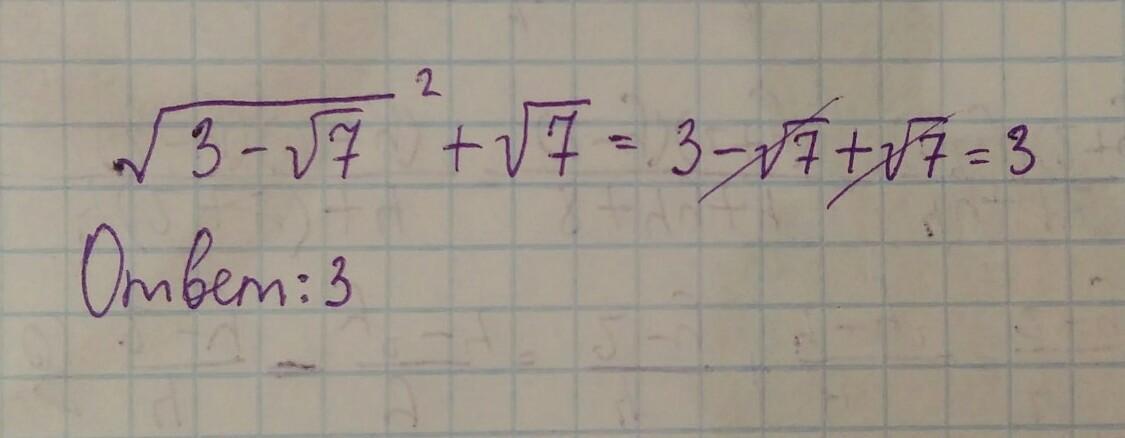 √(3 - √7)² + √7 = 3 - √7 + √7 = 3
Ответ: 3